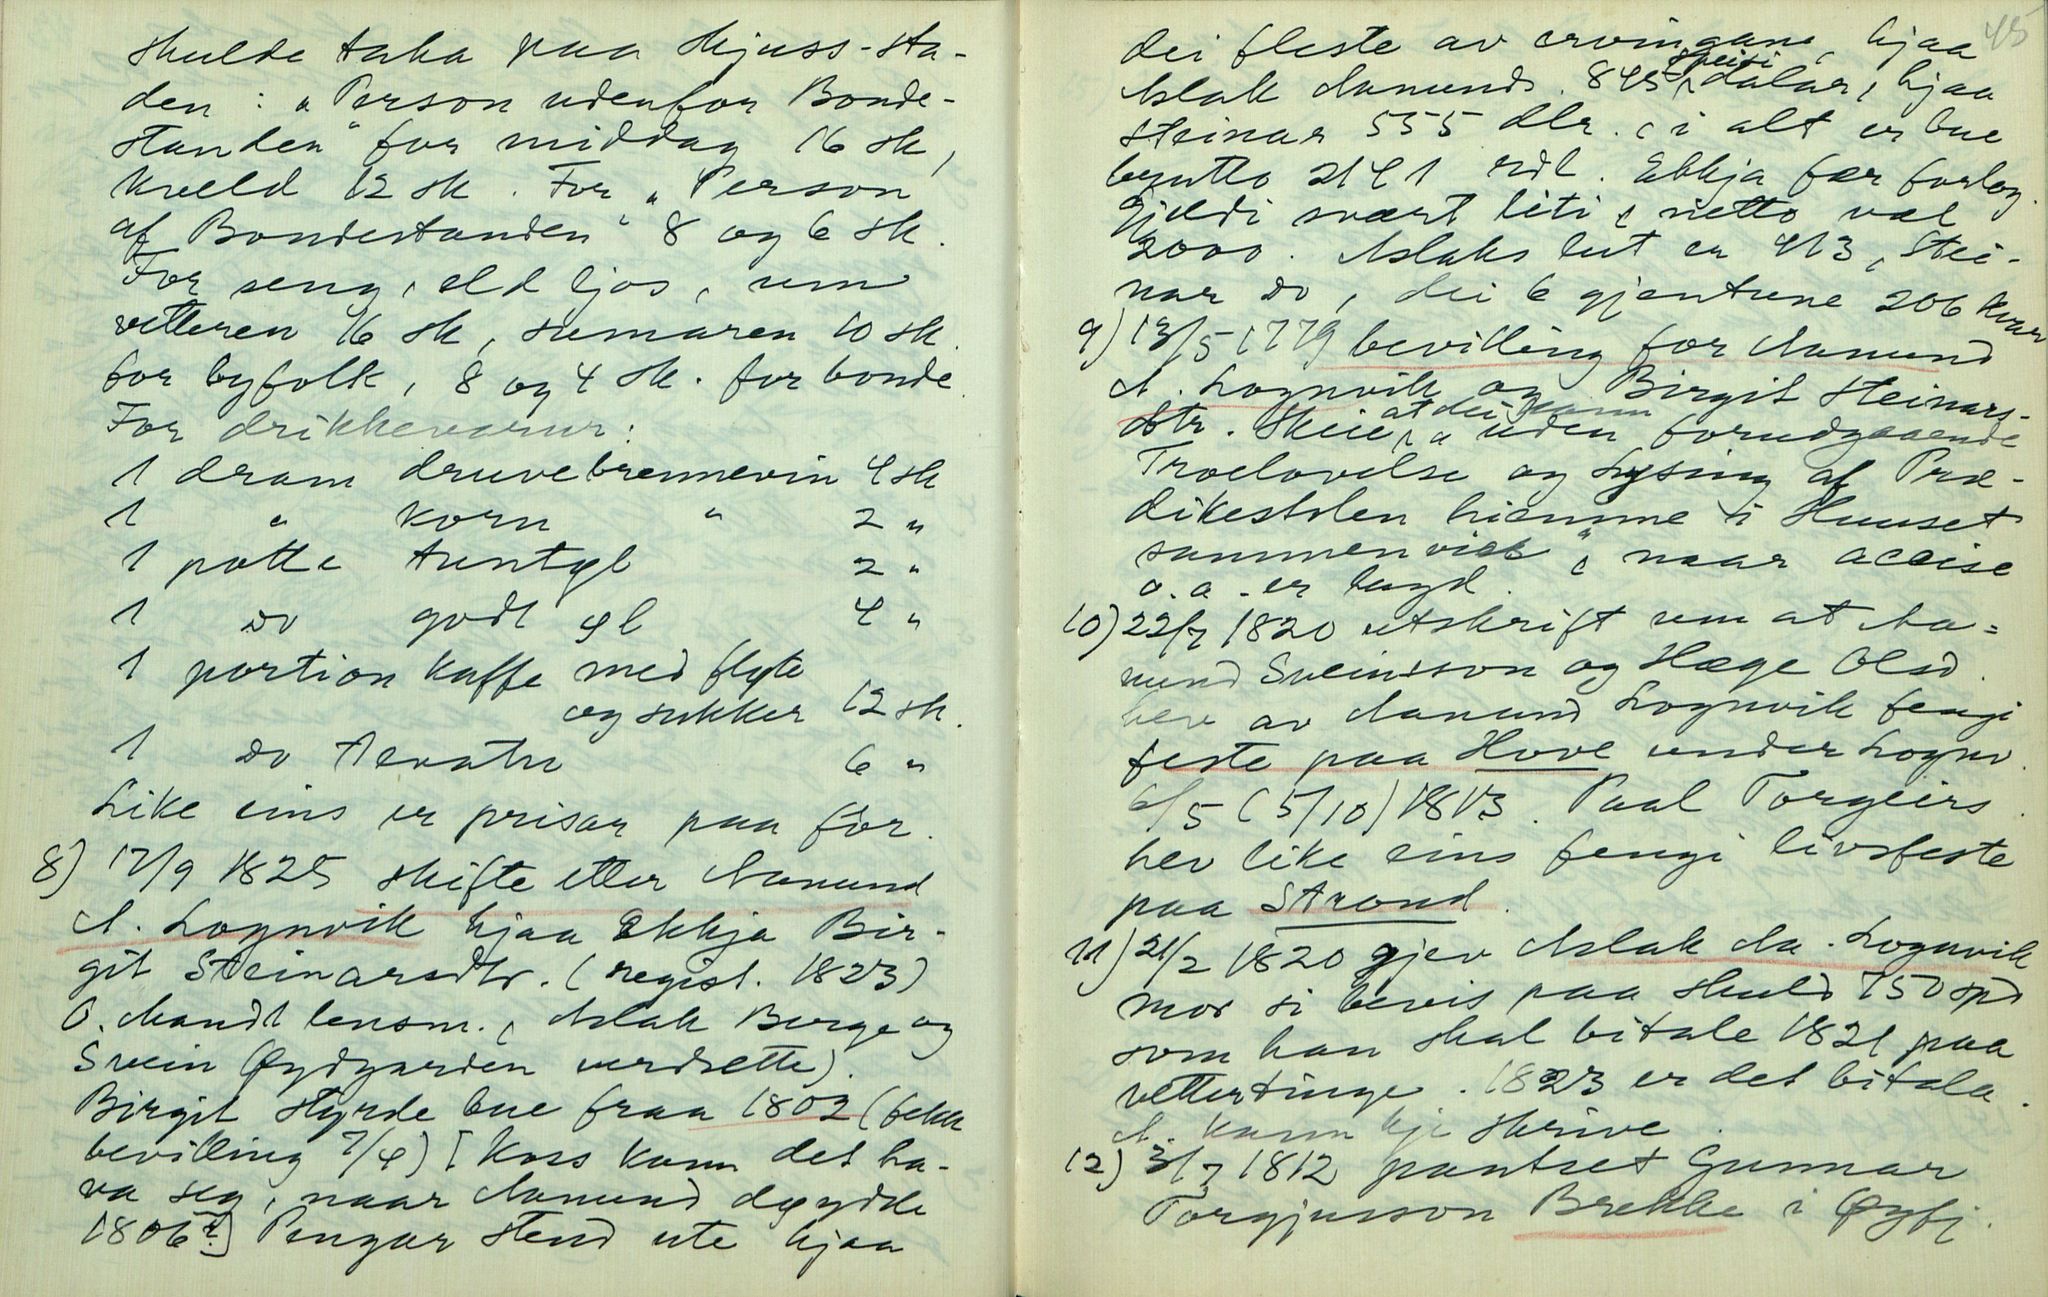 skulde taka paa skjuss-sta-
den: „Person udenfor Bonde-
standen“ for middag 16 sk,
kveld 12 sk. For „Person
af Bondestanden“ 8 og 6 sk.
For seng, eld ljos, um
vetteren 16 sk, sumaren 10 sk.
for byfolk, 8 og 4 sk. for bonde.
For drikkevarur:
1 dram druvebrennevin 4 sk
1 „ korn „ 2 „
1 potte tuntøl 2 „
1 do godt øl 4 „
1 portion kaffe med fløte
og sukker 12 sk.
1 do Tevatn 6 „
Like eins er prisar paa for.
8) 17/9 1825 skifte etter Aanund
A. Lognvik hjaa ekkja Bir-
git Steinarsdtr. (regist. 1823)
O. Aamdt lensm., Aslak Berge og
Svein Øydgarden verdsette).
Birgit styrde bue fraa 1802 (fekk
bevilling 7/4) [Koss kann det ha-
va seg, naar Aanund døydde
1806?] Pengar stend ute hjaa
45
dei fleste av ervingane, hjaa
spesi
Aslak Aanunds. 845 dalar, hjaa
Steinar 555 dlr., i alt er bue
brutto 2141 rdl. Ekkja fær forlog.
Gjeldi svært liti, netto vel
2000. Aslaks lut er 413, Stei-
nar do, dei 6 gjentune 206 kvar
9) 13/5 1779 bevilling for Aanund
A. Lognvik og Birgit Steinars-
at dei kann
dtr. Skeie, „uden forudgaaende
Troelovelse og Lysning af Præ-
dikestolen hiemme i Huuset
sammenvies“, naar accise
o.a. er lagd.
10) 22/7 1820 utskrift um at Aa-
nund Sveinsson og Hæge Olsd.
hev av Aanund Lognvik fengi
feste paa Hove under Lognv.
6/5 (5/10) 1813. Paal Torgeirs.
hev like eins fengi livsfeste
paa Strond.
11) 21/2 1820 gjev Aslak Aa. Lognvik
mor si bevis paa skuld 750 spd
som han skal bitale 1821 paa
vettertinge. 1823 er det bitala.
A. kann kje skrive.
12) 3/7 1812 pantset Gunnar
Torgjusson Brekke i Øyfj.